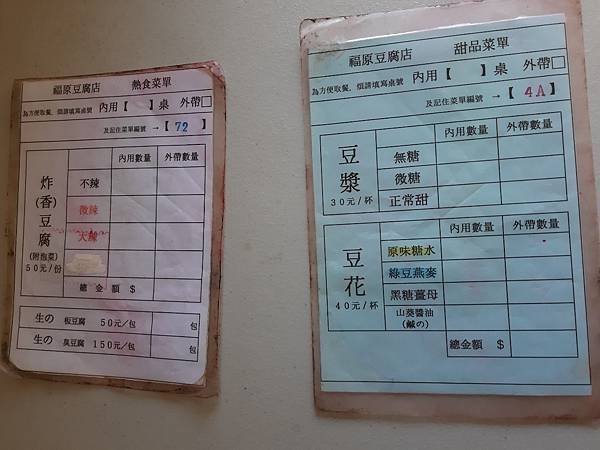 福原豆腐店 熱食菜單
為方便取餐，煩請填寫桌號 內用【 】桌 外帶□
及記住菜單編號 →【 72 】
內用數量 外帶數量
炸(香)豆腐
(附泡菜)
50元/份
不辣
微辣
大辣
總金額 $
生の 板豆腐 50元/包 包
生の 臭豆腐 150元/包 包
福原豆腐店 甜品菜單
為方便取餐，煩請填寫桌號 內用【 】桌 外帶□
及記住菜單編號 →【 4A 】
內用數量 外帶數量
豆漿
30元/杯
無糖
微糖
正常甜
內用數量 外帶數量
豆花
40元/杯
原味糖水
綠豆燕麥
黑糖薑母
山葵醬油
(鹹の)
總金額 $